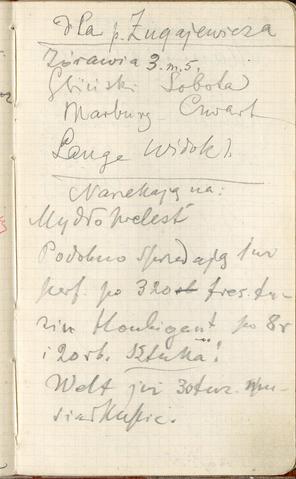 dla p. Zugajewicza
Żórawia 3. m. 5.
Gliński Sobota
Marburg Czwart
Lange Widok 1.
Narzekają na:
Mydło
Podobno sprzedają
perf. po 320 rb fres. tu-
zin Houbigant po 8r
i 20 rb. Sztuka!
Welt już 30 tuz.